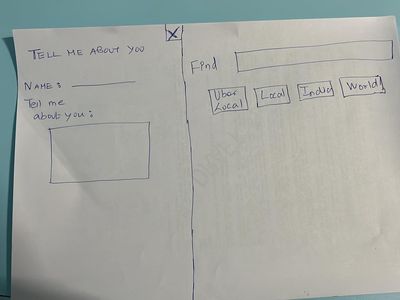 TELL ME ABOUT YOU
X
NAME:
Tell me
about you:
Find
Uber
Local
Local
India
World